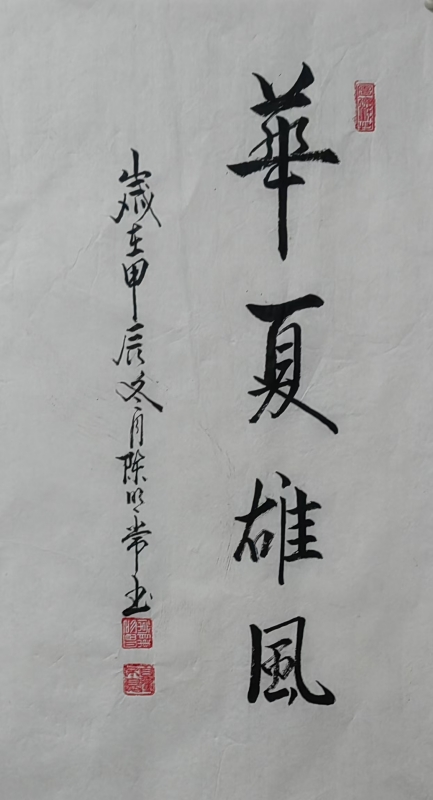 華夏雄風
歲在甲辰冬月陈明常书